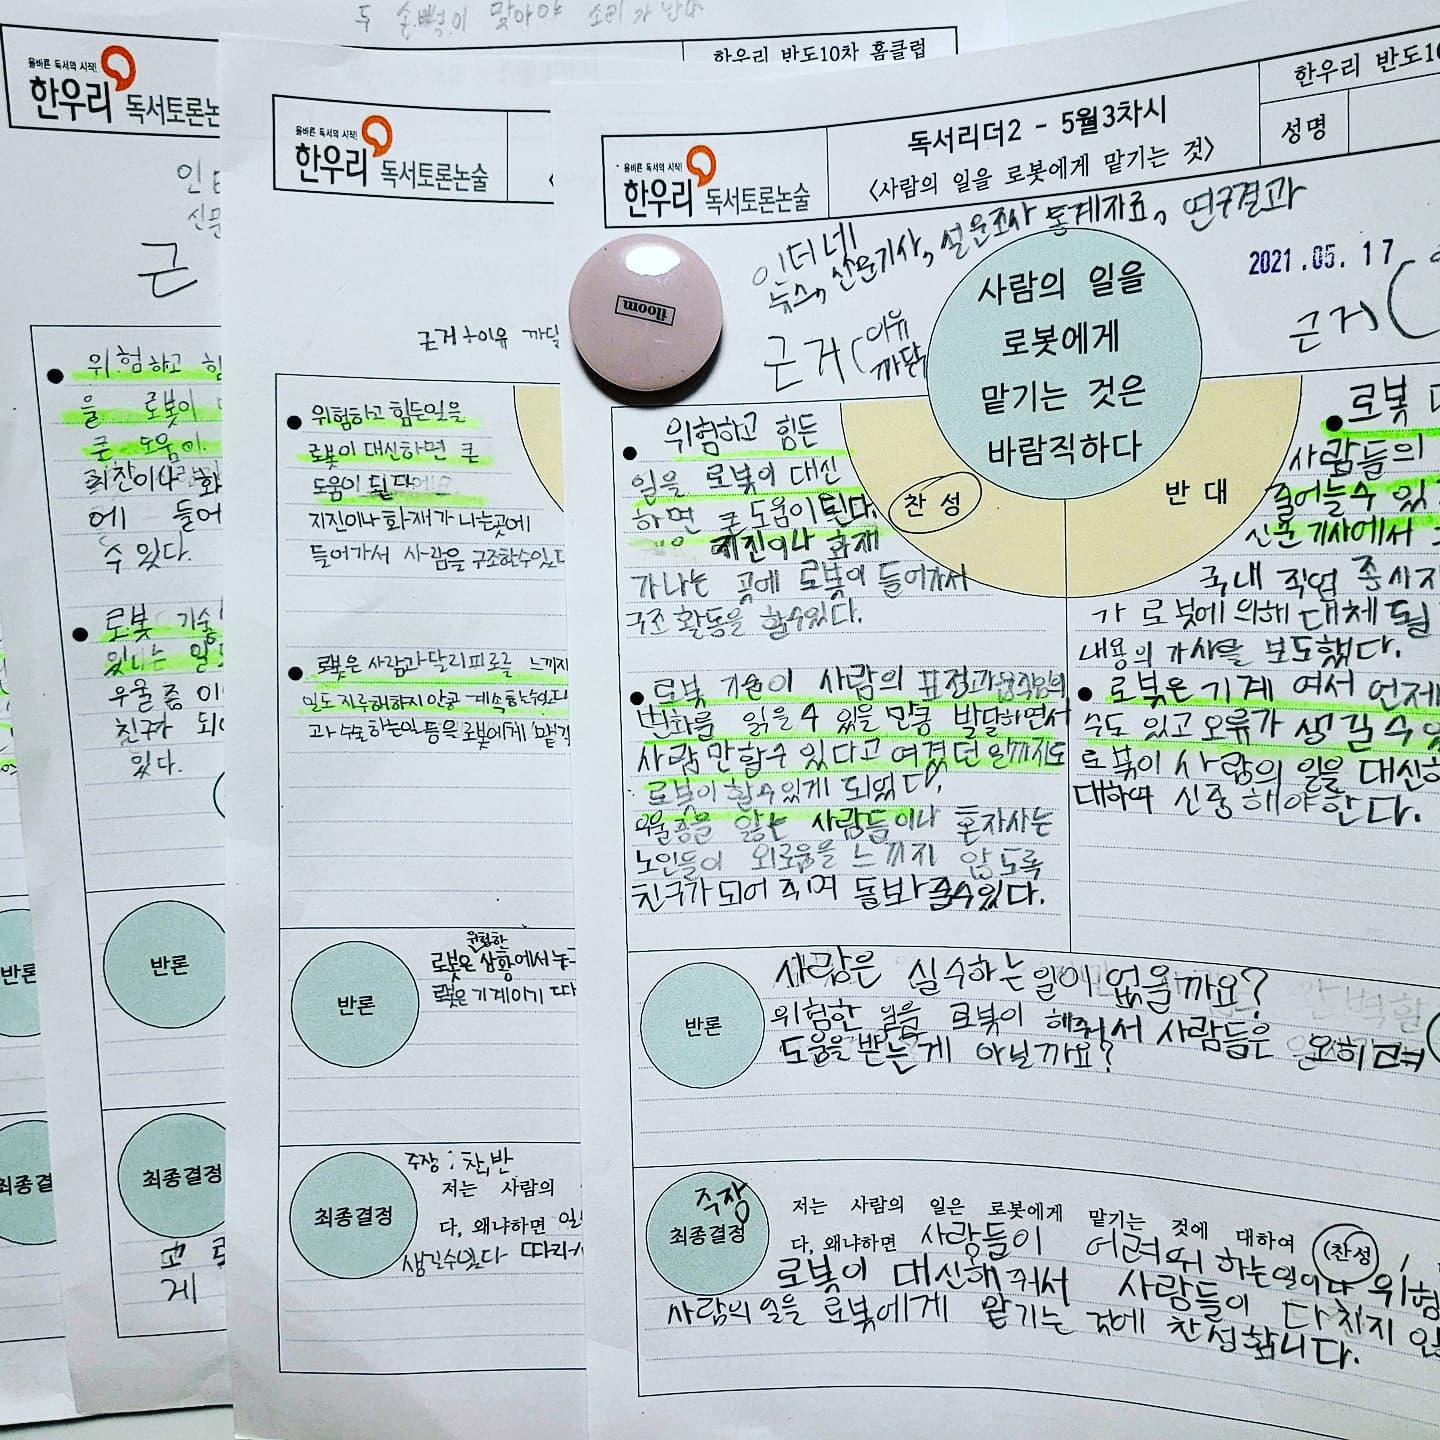 두 손뼉이 맞아야 소리가 난다
한우리 반도10차 홈클럽
올바른 독서의 시작!
한우리 독서토론논술
근
위험하고 힘
을 로봇이
큰 도움이
지진이나 화
에 들어
수 있다.
로봇 기술
있는 일
우울증 이
친구가 되
있다.
반론
최종결정
게
반론
최종결
올바른 독서의 시작!
한우리 독서토론논술
근거→이유 까닭
위험하고 힘든일을
로봇이 대신하면 큰
도움이 된다
지진이나 화재가 나는곳에
들어가서 사람을 구조할수있다
로봇은 사람과 달리 피로를 느끼지
일도 지루해하지 않고 계속할수있다
과 수술하는일 등을 로봇에게 맡길
반론
위험한
로봇은 상황에서
로봇은 기계이기 따
최종결정
주장 : 찬,반
저는 사람의
다, 왜냐하면
생길수있다 따라서
올바른 독서의 시작!
한우리 독서토론논술
독서리더2 - 5월3차시
<사람의 일을 로봇에게 맡기는 것>
한우리 반도10
성명
인터넷
뉴스, 신문기사, 설문조사 통계자료, 연구결과
2021.05.17
iloom
근거(이유
까닭
근거(
사람의 일을
로봇에게
맡기는 것은
바람직하다
찬성
반대
위험하고 힘든
일을 로봇이 대신
하면 큰 도움이된다.
지진이나 화재
가 나는 곳에 로봇이 들어가서
구조 활동을 할수있다.
로봇 기술이 사람의 표정과 움직임의
변화를 읽을 수 있을 만큼 발달하면서
사람만 할수 있다고 여겼던 일까지도
로봇이 할수있게 되었다.
우울증을 앓는 사람들이나 혼자사는
노인들이 외로움을 느끼지 않도록
친구가 되어 주며 돌봐 줄수있다.
로봇
사람들의
줄어들수 있
신문 기사에서
국내 직업 종사자
가 로봇에 의해 대체 될
내용의 기사를 보도했다.
로봇은 기계 여서 언제
수도 있고 오류가 생길수있
로봇이 사람의 일을 대신하
대하여 신중 해야한다.
반론
사람은 실수하는일이 없을까요?
위험한 일을 로봇이 해줘서 사람들은 오히려
도움을 받는 게 아닐까요?
주장
최종결정
저는 사람의 일은 로봇에게 맡기는 것에 대하여 (찬성
다, 왜냐하면 사람들이 어려워 하는일이나 위험
로봇이 대신해 줘서 사람들이 다치지 않
사람의 일을 로봇에게 맡기는 것에 찬성합니다.